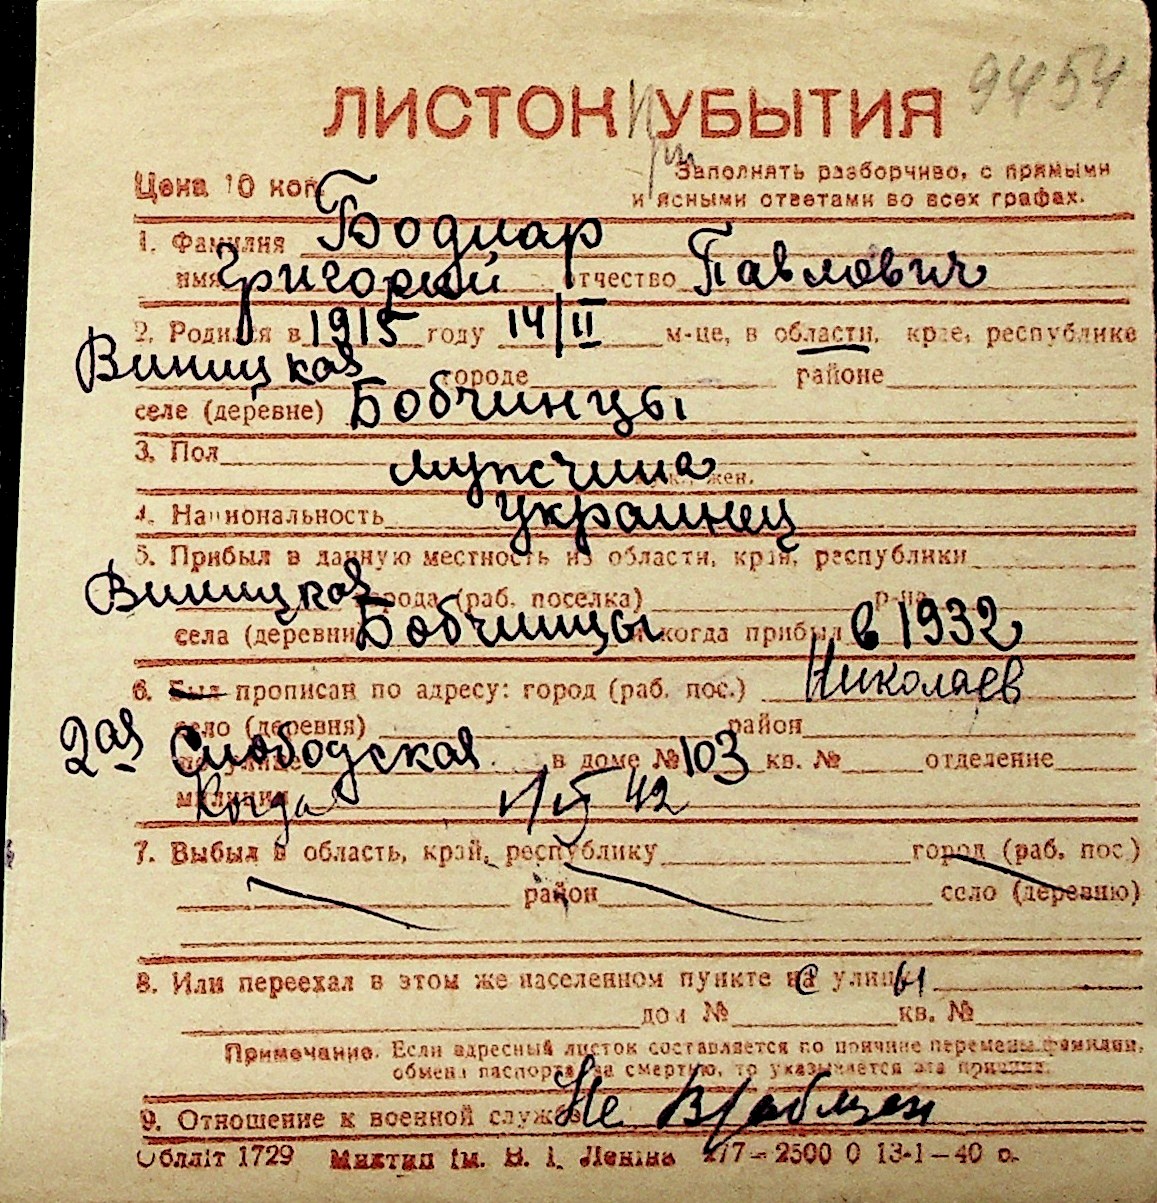 9454
ЛИСТОК УБЫТИЯ
при
Цена 10 коп.
Заполнять разборчиво, с прямыми
и ясными ответами во всех графах.
1. Фамилия Боднар
имя Григорий отчество Павлович
2. Родился в 1915 году 14/II м-це, в области, крае, республике
Виницкая городе районе
селе (деревне) Бобчинцы
3. Пол мужсчина
жен.
4. Национальность украинец
5. Прибыл в данную местность из области, края, республики
Виницкая города (раб. поселка) р-на
села (деревни) Бобчинцы и когда прибыл в 1932
6. Был прописан по адресу: город (раб. пос.) Николаев
село (деревня) район
2ая Слободская в доме № 103 кв. № отделение
милиции Когда 1/5 42
7. Выбыл в область, край, республику город (раб. пос.)
район село (деревню)
8. Или переехал в этом же населенном пункте с улицы
дом № кв. №
Примечание. Если адресный листок составляется по причине перемены фамилии,
обмена паспорта, за смертью, то указывается эта причина.
9. Отношение к военной службе Не
Обллiт 1729 Миктип iм. В. І. Ленiна 277–2500 0 13-1–40 р.